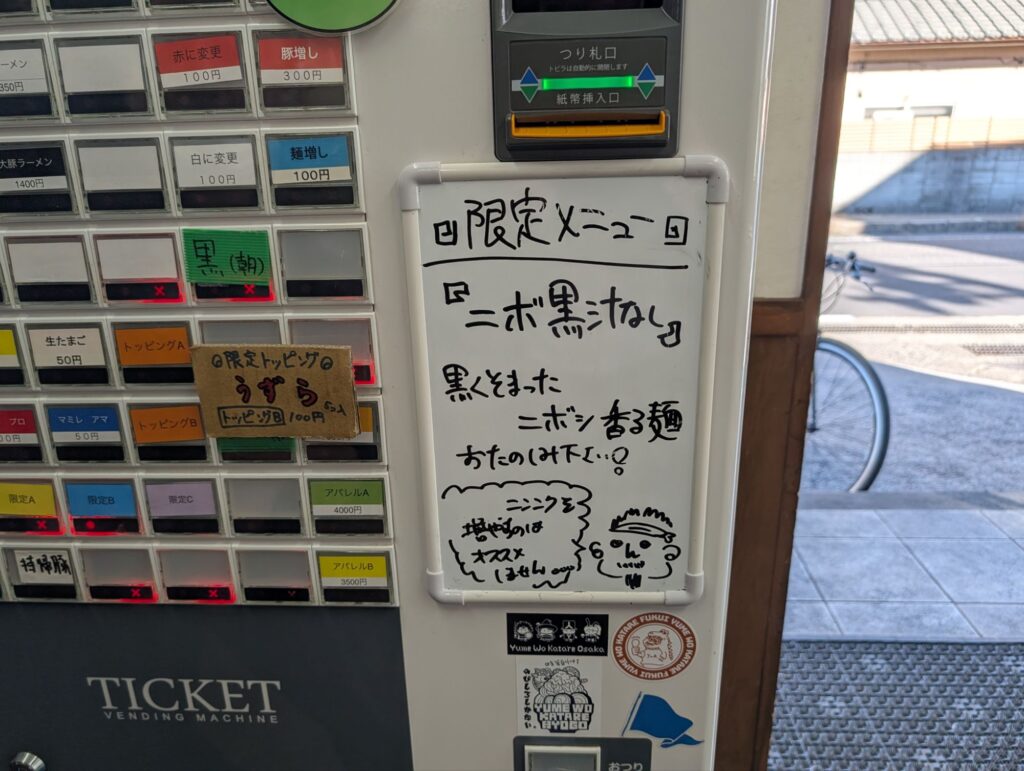 ーメン
350円
赤に変更
100円
豚増し
300円
大豚ラーメン
1400円
白に変更
100円
麺増し
100円
黒(朝)
生たまご
50円
トッピングA
限定トッピング
うずら
5コ入
トッピングB 100円
プロ
00円
マミレ アマ
50円
トッピングB
限定A
限定B
限定C
アパレルA
4000円
アパレルB
3500円
TICKET
VENDING MACHINE
つり札口
トビラは自動的に開閉します
紙幣挿入口
限定メニュー
『ニボ黒汁なし』
黒くそまった
ニボシ香る麺
おたのしみ下さい…!
ニンニクを
増やすのは
オススメ
しません…
Yume Wo Katare Osaka
YUME WO KATARE FUKUI YUME WO KATARE FUKUI
YUME WO
KATARE
HYOGO
おつり